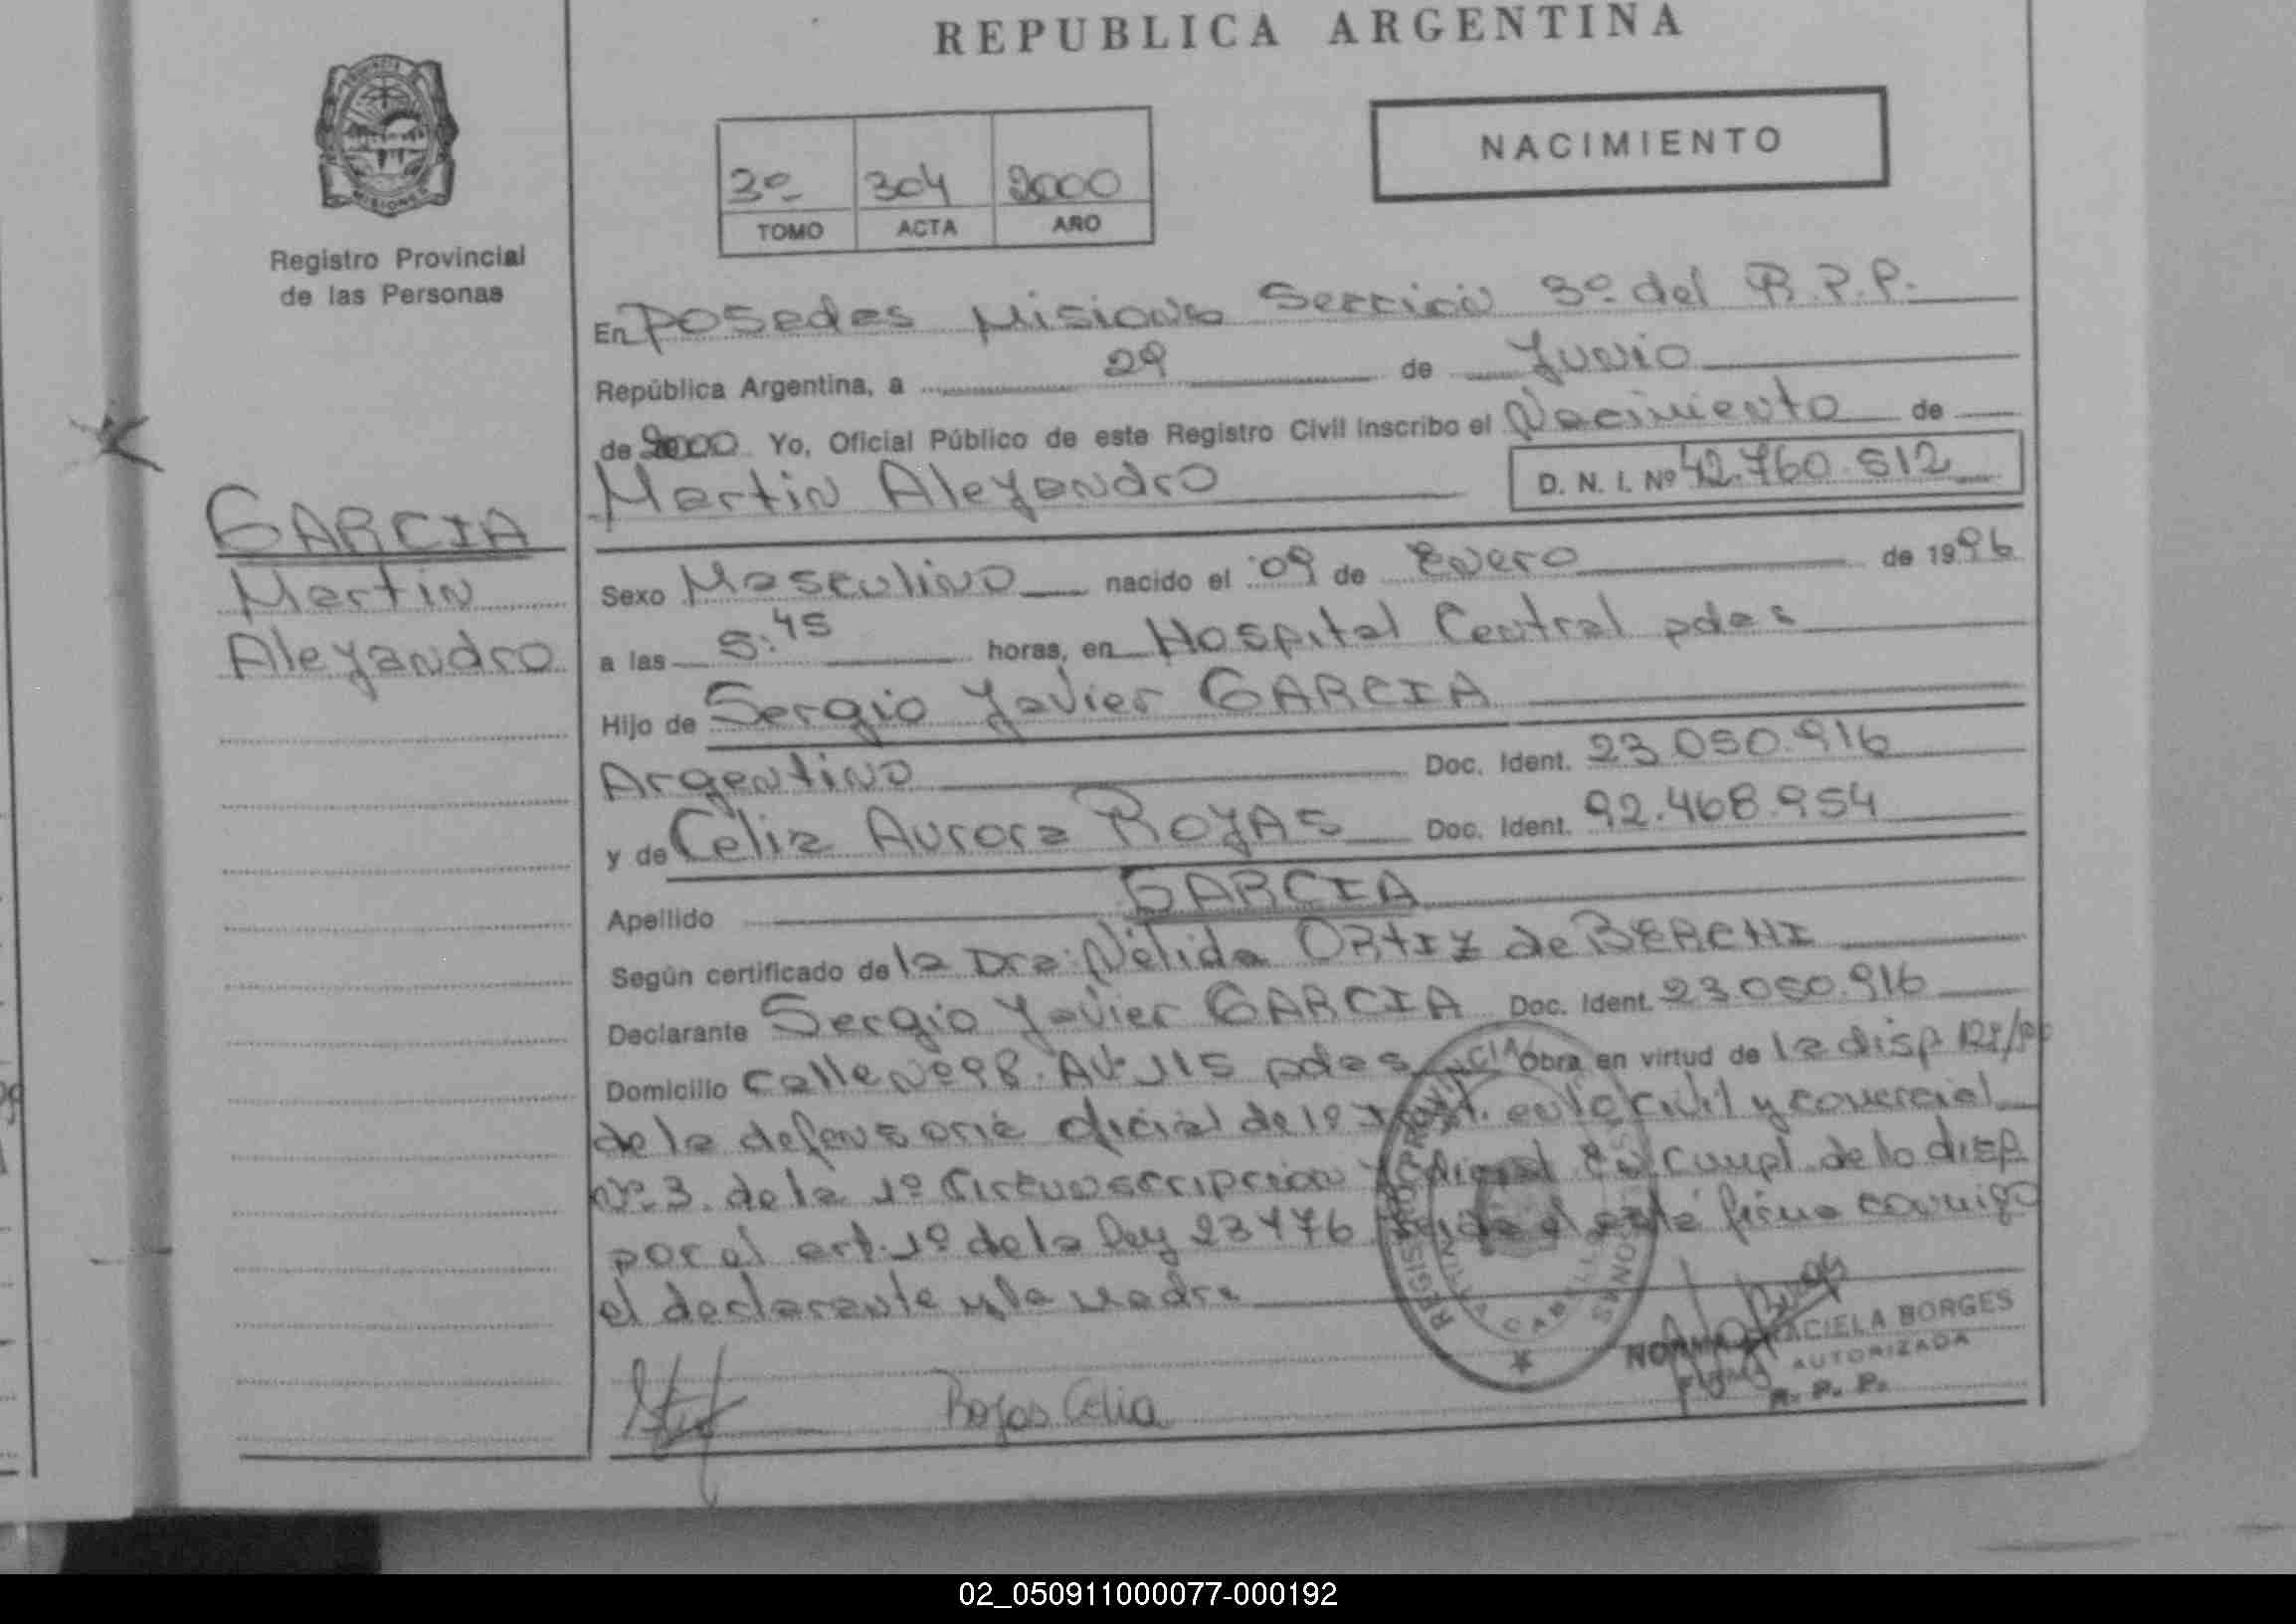 REPUBLICA ARGENTINA
NACIMIENTO
3º 304 2000
TOMO ACTA AÑO
Registro Provincial
de las Personas
En Posadas Misiones Sección 3º del R.P.P.
República Argentina, a 29 de Junio
de 2000 Yo, Oficial Público de este Registro Civil inscribo el Nacimiento de
Martin Aleyandro
D. N. I. Nº 42.760.512
GARCIA
Martin
Aleyandro
Sexo Masculino nacido el 09 de Enero de 1996
a las 5:45 horas, en Hospital Central pdas
Hijo de Sergio Yavier GARCIA
Argentino Doc. Ident. 23.050.916
y de Celia Aurora ROYAS Doc. Ident. 92.468.954
Apellido GARCIA
Según certificado de la Dra: Nélida ORTIZ de BERCHI
Declarante Sergio Yavier GARCIA Doc. Ident. 23.050.916
Domicilio Calle Nº 98. Av. 115 pdas Obra en virtud de la disp
de la defensoria oficial de 1º en lo civil y comercial
Nº 3. de la 1º Circunscripcion en cumpl. de lo disp
por el art. 1º de la ley firma conmigo
el declarante y la madre
Rojas Celia
GRACIELA BORGES
AUTORIZADA
R. P. P.
02_050911000077-000192